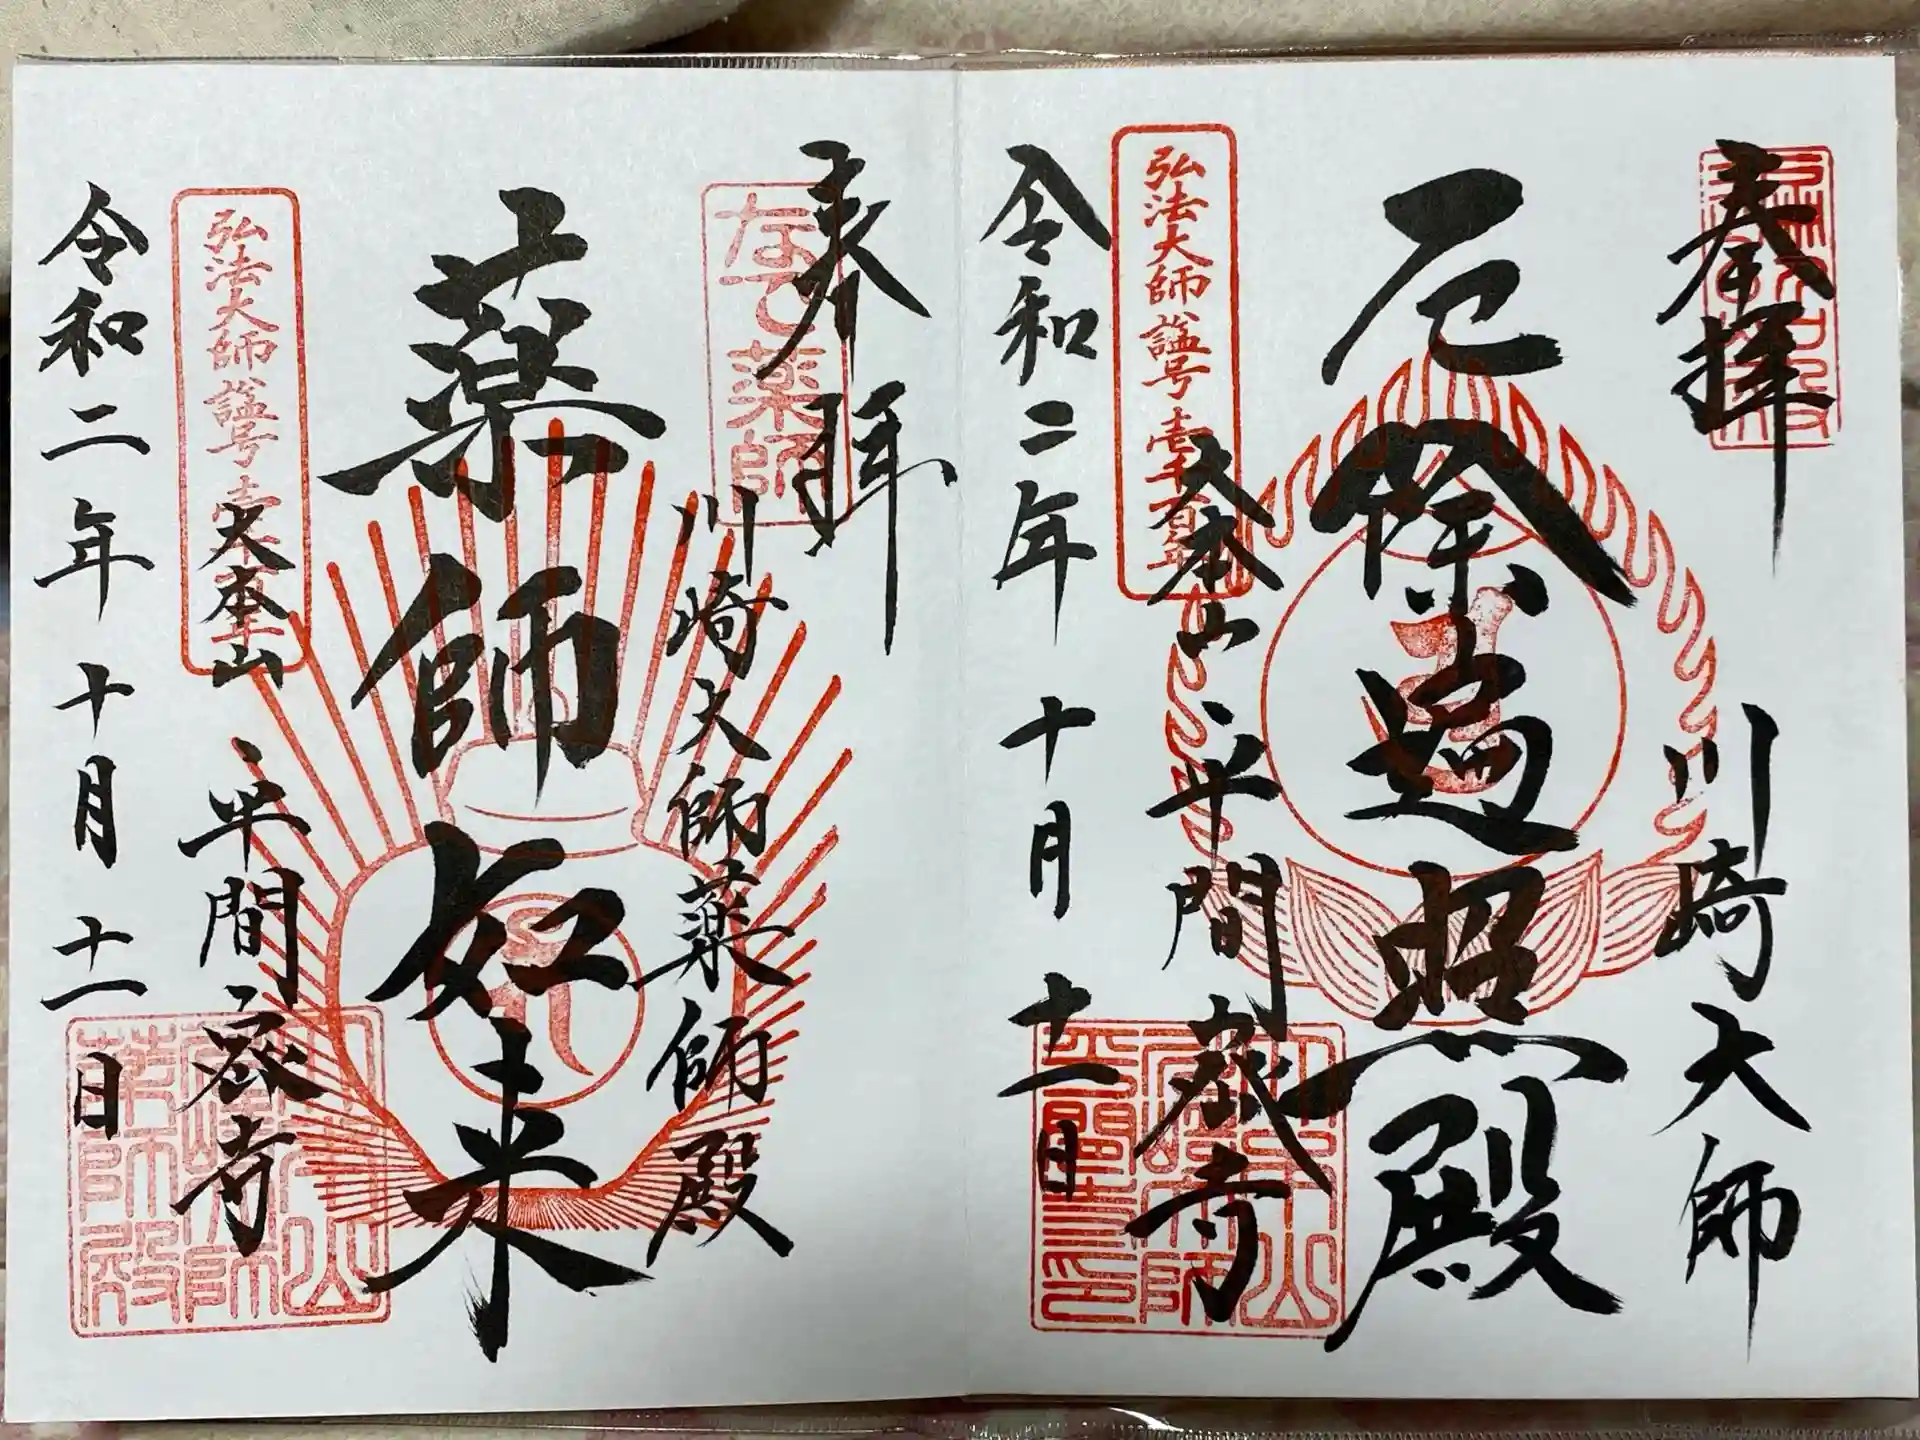 奉拝
川崎大師
厄除遍照殿
弘法大師諡号壱千百年
大本山
平間寺
令和二年十月十一日
奉拝
なで薬師
川崎大師薬師殿
薬師如来
弘法大師諡号壱千
大本山
平間寺
令和二年十月十一日